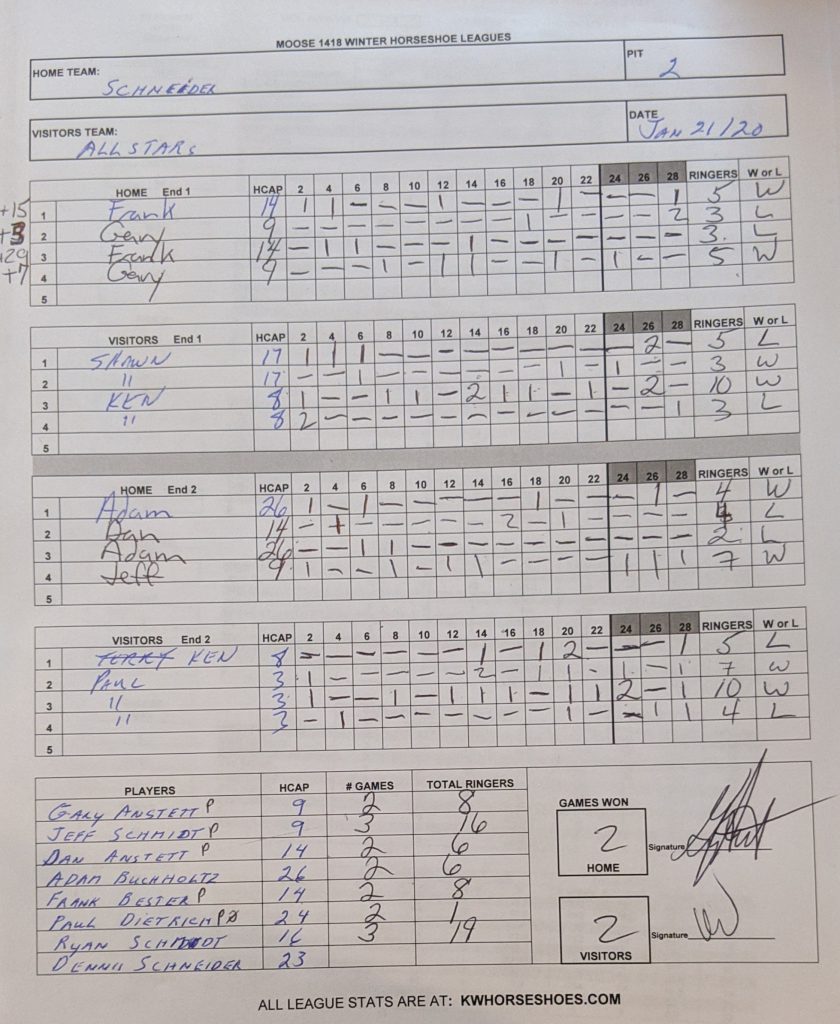 MOOSE 1418 WINTER HORSESHOE LEAGUES
HOME TEAM: SCHNEIDER PIT 2
VISITORS TEAM: ALL STARS DATE JAN 21/20
HOME End 1 HCAP 2 4 6 8 10 12 14 16 18 20 22 24 26 28 RINGERS W or L
+15 1 Frank 14 1 1 - - - 1 - - - 1 - - - 1 5 W
+3 2 Gary 9 - - - - - - - - 1 - - - - 2 3 L
+29 3 Frank 14 - 1 1 - - - 1 - - - - - - - 3 L
+7 4 Gary 9 - - - 1 - 1 1 - - 1 - 1 - - 5 W
5
VISITORS End 1 HCAP 2 4 6 8 10 12 14 16 18 20 22 24 26 28 RINGERS W or L
1 SHAWN 17 1 1 1 - - - - - - - - - 2 - 5 L
2 " 17 - - 1 - - - - - - 1 - 1 - - 3 W
3 KEN 8 1 - - 1 1 - 2 1 1 - 1 - 2 - 10 W
4 " 8 2 - - - - - - - - - - - - 1 3 L
5
HOME End 2 HCAP 2 4 6 8 10 12 14 16 18 20 22 24 26 28 RINGERS W or L
1 Adam 26 1 - 1 - - - - - 1 - - - 1 - 4 W
2 Dan 14 - + - - - - - 2 - 1 - - - - 4 L
3 Adam 26 - - 1 1 - - - - - - - - - - 2 L
4 Jeff 9 1 - - 1 - 1 1 - - - - 1 1 1 7 W
5
VISITORS End 2 HCAP 2 4 6 8 10 12 14 16 18 20 22 24 26 28 RINGERS W or L
1 TERRY KEN 8 - - - - - - 1 - 1 2 - - - 1 5 L
2 PAUL 3 1 - - - - - 2 - 1 1 - 1 - 1 7 W
3 " 3 1 - - 1 - 1 1 1 - 1 1 2 - 1 10 W
4 " 3 - 1 - - - - - - - 1 - - 1 1 4 L
5
PLAYERS HCAP # GAMES TOTAL RINGERS
GARY ANSTETT P 9 2 8
JEFF SCHMIDT P 9 3 16
DAN ANSTETT P 14 2 6
ADAM BUCHHOLTZ 26 2 6
FRANK BESTER P 14 2 8
PAUL DIETRICH P 24 2 1
RYAN SCHMIDT 16 3 19
DENNIS SCHNEIDER 23
GAMES WON
2
HOME
Signature
2
VISITORS
Signature
ALL LEAGUE STATS ARE AT: KWHORSESHOES.COM